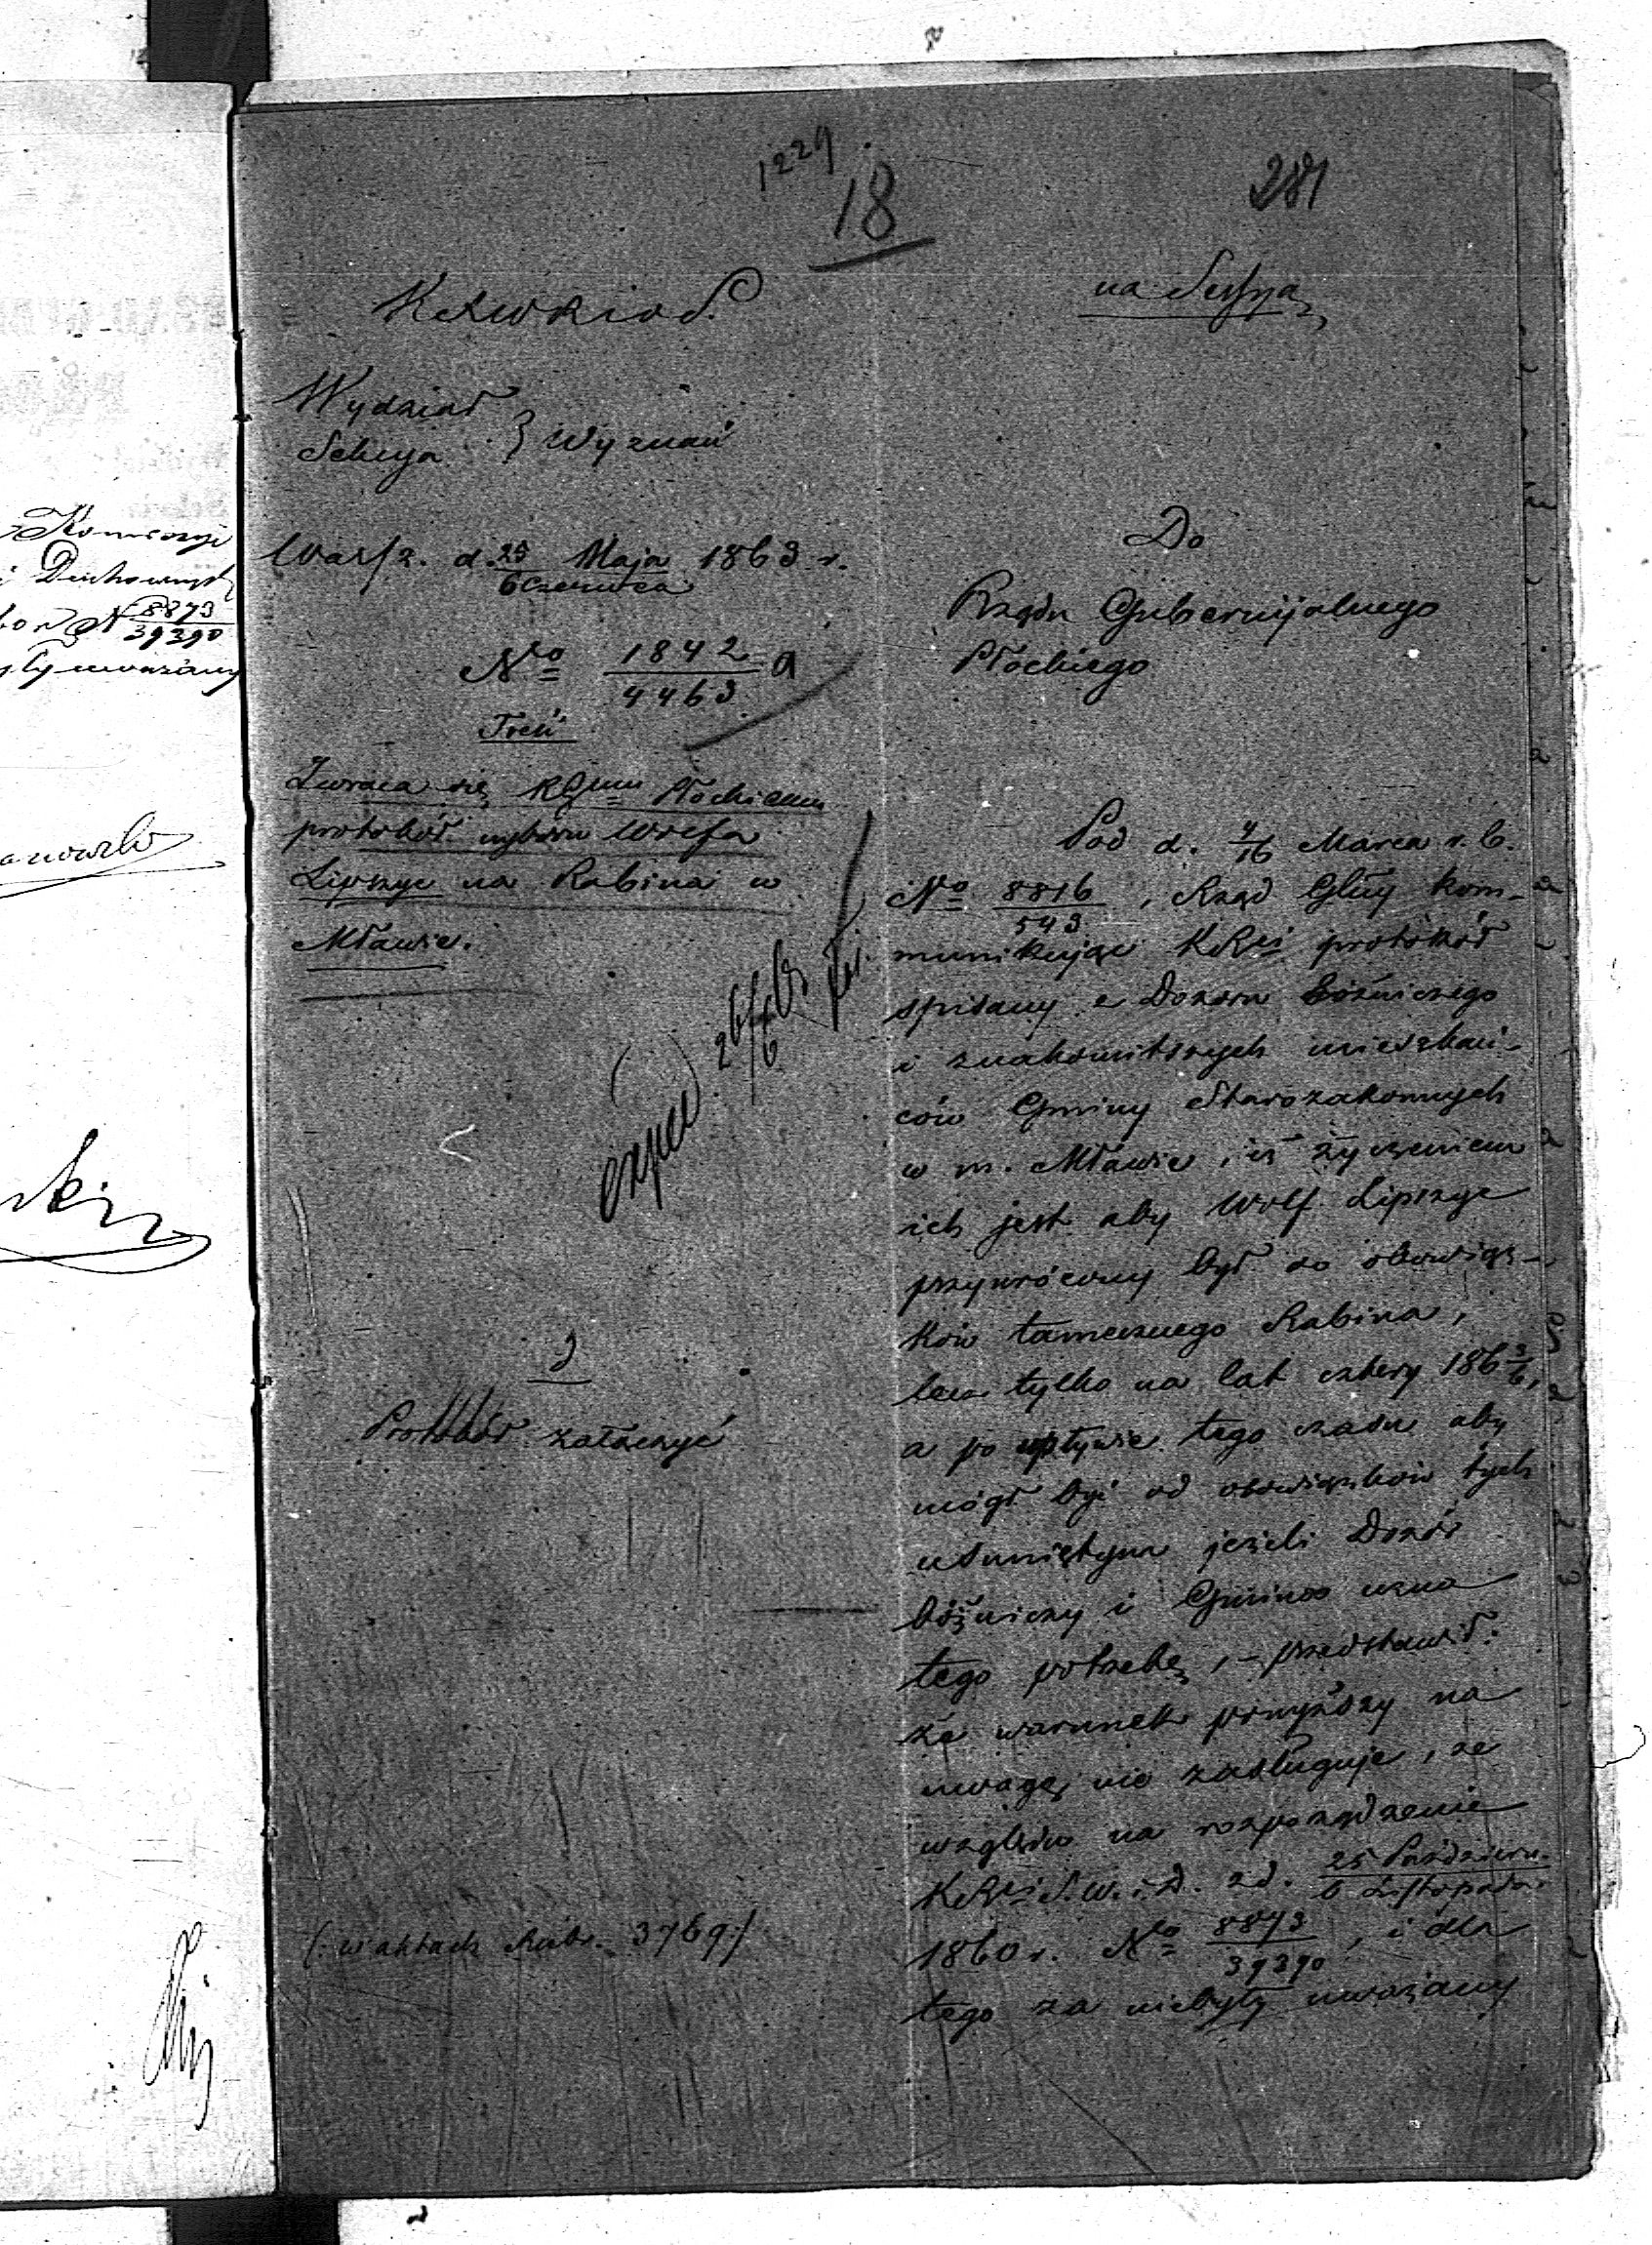 1229
18
281
na Sessyą
Wydział
Sekcya } Wyznań
Warsz. d. 25 Maja 1863 r.
6 Czerwca
No 1842
4463
Treść
Zwraca się RGmu Płockiemu
protokół wyboru Wolfa
Lipszyc na Rabina w
Mławie.
Protokół załączyć
(: w aktach Rub. 3769 :)
Do
Rządu Gubernijalnego
Płockiego
Pod d. 4/16 Marca r. b.
No 8816/543, Rząd Glny kom-
munikując KRsi protokół
spisany z Dozoru Bóźniczego
i znakomitszych mieszkań-
ców Gminy Starozakonnych
w m. Mławie, iż życzeniem
ich jest aby Wolf Lipszyc
przywrócony był do obowiąz-
ków tamecznego Rabina,
lecz tylko na lat cztery 1863/6,
a po upływie tego czasu aby
mógł być od obowiązków tych
usuniętym jeżeli Dozór
bóżniczy i Gmina uzna
tego potrzebę, – przedstawił:
że warunek powyższy na
uwagę nie zasługuje, ze
względu na rozporządzenie
KRsi S. W. i D. z d. 25 Paździer.
6 Listopada
1860 r. No 8873/39390, i dla
tego za niebyły uważany
Komissyi
i Duchownych
No 8873
39390
uważany